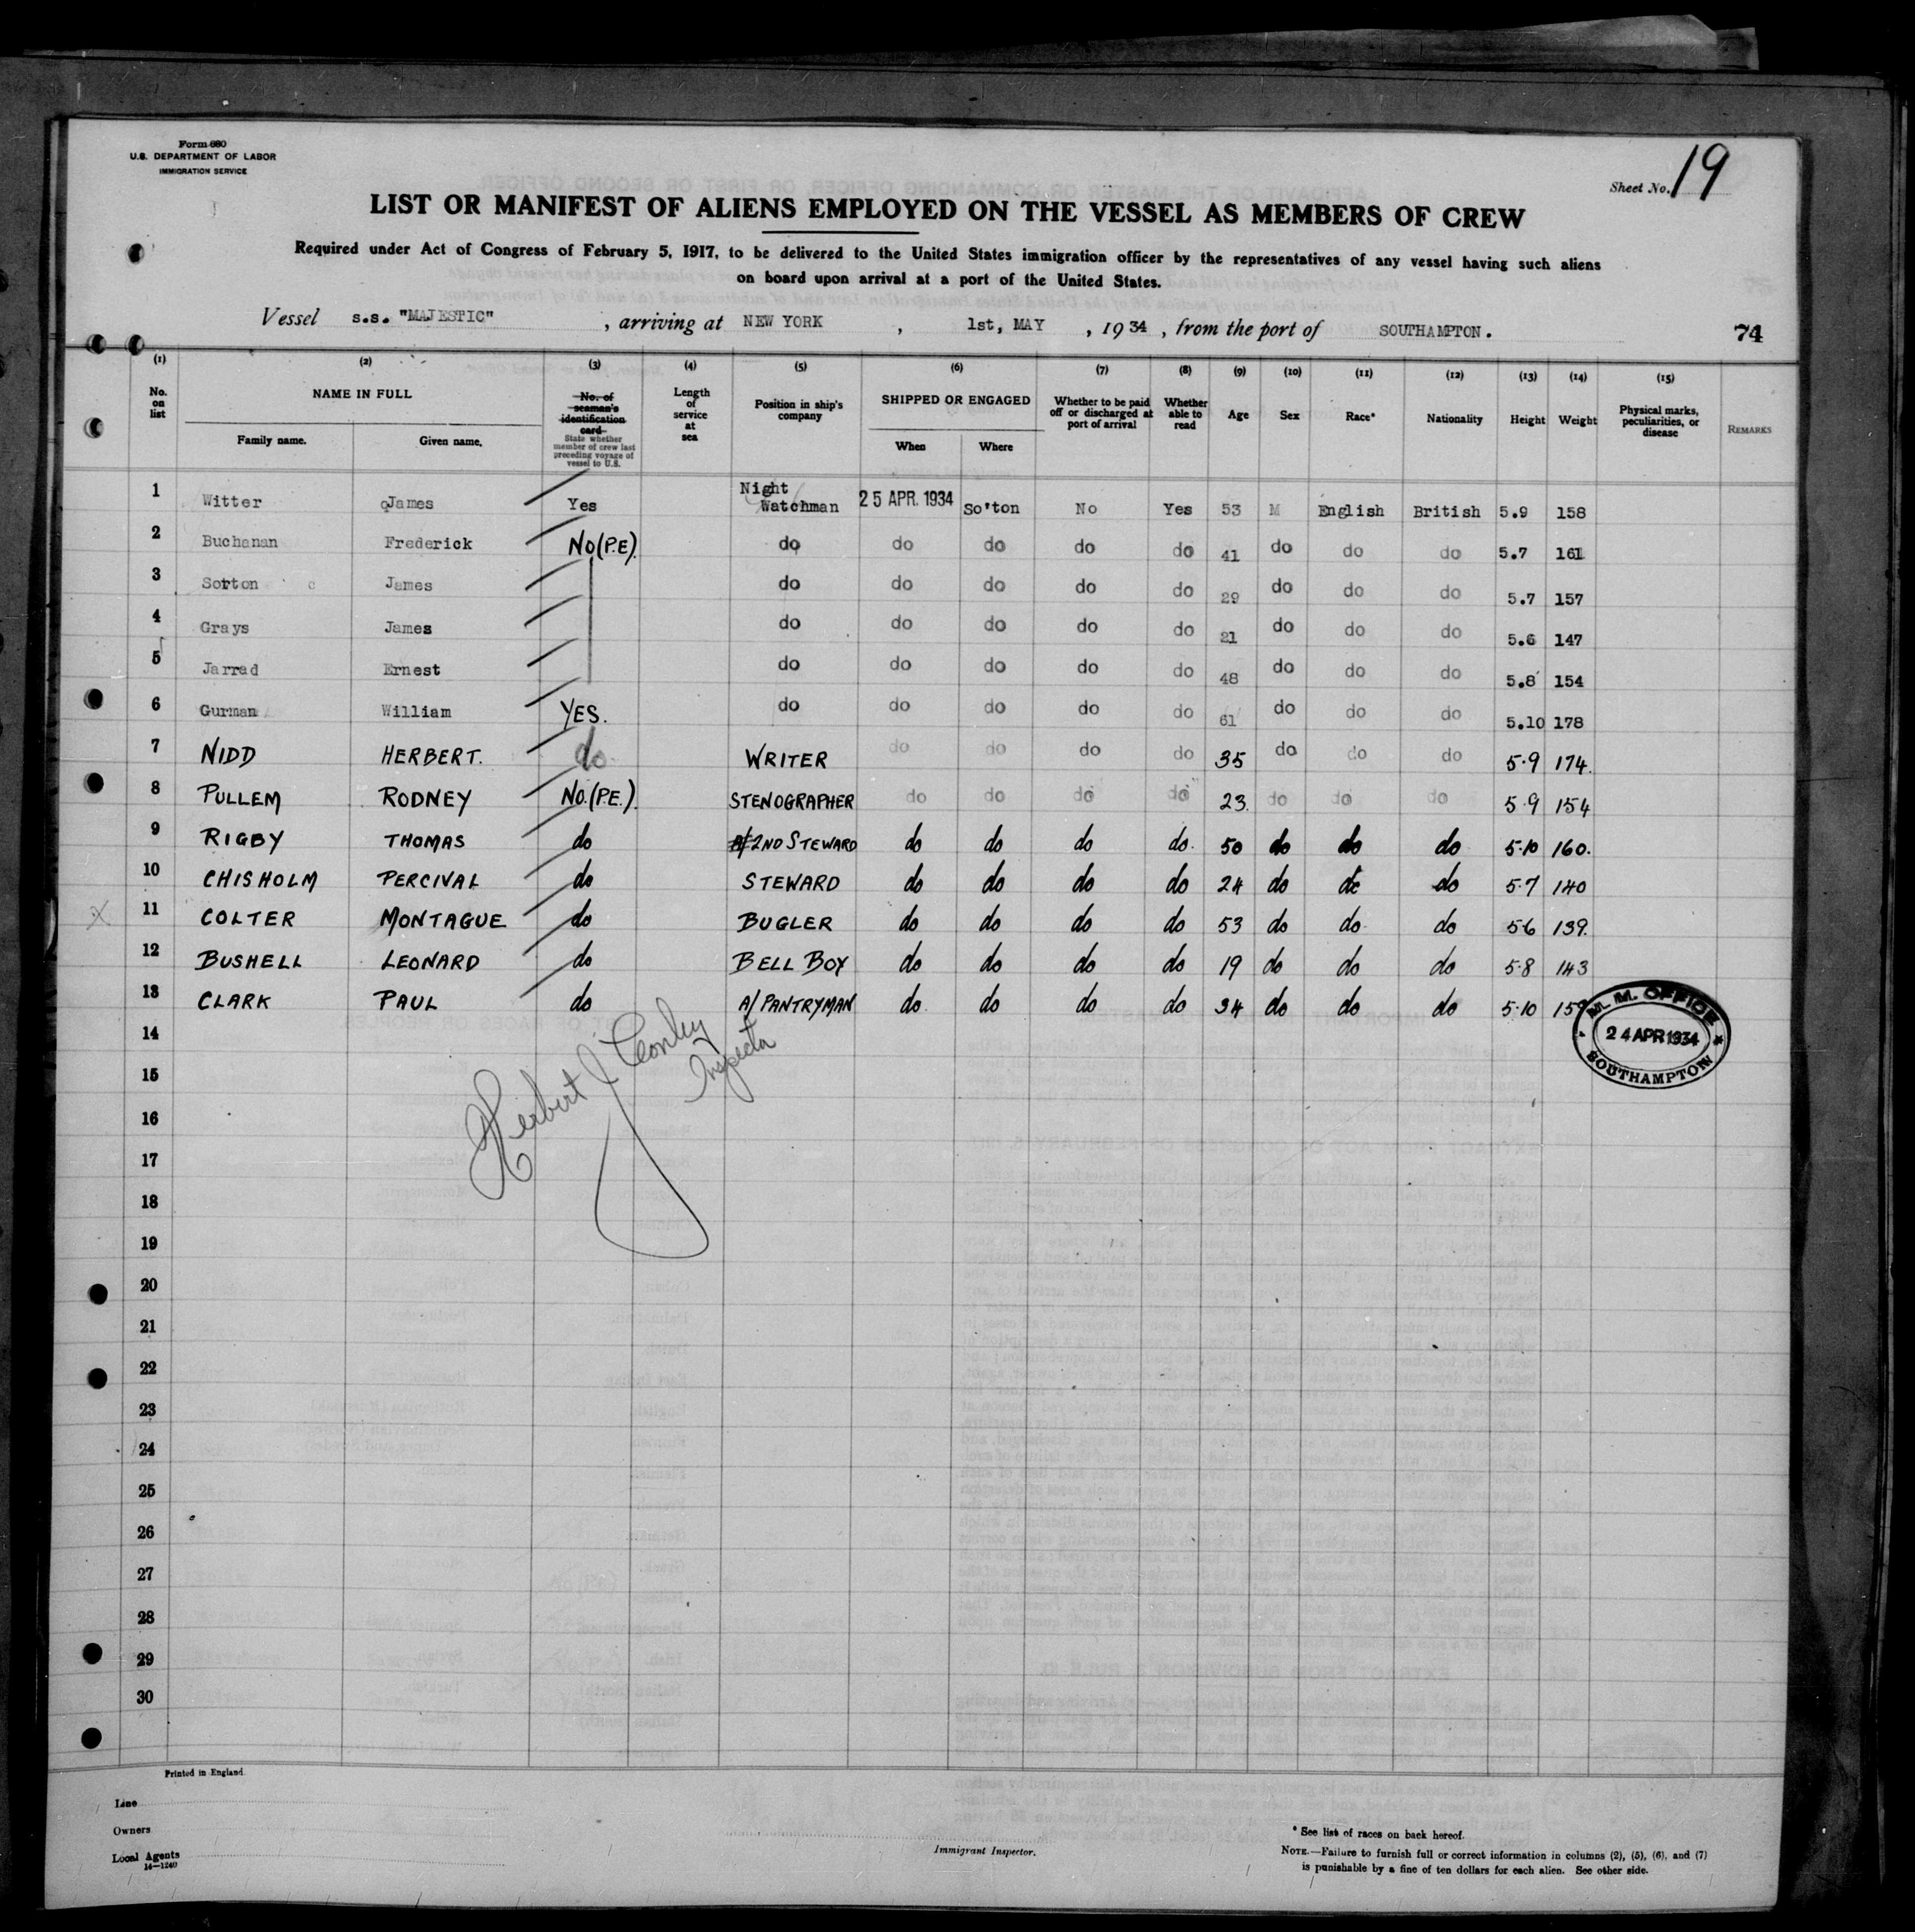 Form 680
U.S. DEPARTMENT OF LABOR
IMMIGRATION SERVICE
Sheet No. 19
LIST OR MANIFEST OF ALIENS EMPLOYED ON THE VESSEL AS MEMBERS OF CREW
Required under Act of Congress of February 5, 1917, to be delivered to the United States immigration officer by the representatives of any vessel having such aliens
on board upon arrival at a port of the United States.
Vessel s.s. "MAJESTIC" , arriving at NEW YORK , 1st, MAY , 19 34 , from the port of SOUTHAMPTON. 74
(1) (2) (3) (4) (5) (6) (7) (8) (9) (10) (11) (12) (13) (14) (15)
No. on list NAME IN FULL Family name. Given name. No. of seaman's identification card State whether member of crew last preceding voyage of vessel to U.S. Length of service at sea Position in ship's company SHIPPED OR ENGAGED When Where Whether to be paid off or discharged at port of arrival Whether able to read Age Sex Race* Nationality Height Weight Physical marks, peculiarities, or disease REMARKS
1 Witter James Yes Night Watchman 25 APR. 1934 So'ton No Yes 53 M English British 5.9 158
2 Buchanan Frederick No (P.E). do do do do do 41 do do do 5.7 161
3 Sotton James do do do do do 29 do do do 5.7 157
4 Grays James do do do do do 21 do do do 5.6 147
5 Jarrad Ernest do do do do do 48 do do do 5.8 154
6 Gurman William YES. do do do do do 61 do do do 5.10 178
7 NIDD HERBERT. do WRITER do do do do 35 do do do 5.9 174.
8 PULLEM RODNEY No. (P.E.). STENOGRAPHER do do do do 23. do do do 5.9 154
9 RIGBY THOMAS do 2ND STEWARD do do do do. 50 do do do 5.10 160.
10 CHISHOLM PERCIVAL do STEWARD do do do do 24 do do do 5.7 140
11 COLTER MONTAGUE do BUGLER do do do do 53 do do do 5.6 139.
12 BUSHELL LEONARD do BELL BOY do do do do 19 do do do 5.8 143
13 CLARK PAUL do A/ PANTRYMAN do do do do 34 do do do 5.10 159
M. M. OFFICE
24 APR 1934
SOUTHAMPTON
Herbert J Conley
Inspector
14
15
16
17
18
19
20
21
22
23
24
25
26
27
28
29
30
Printed in England.
Line
Owners
Local Agents
14-1240
Immigrant Inspector.
* See list of races on back hereof.
NOTE.—Failure to furnish full or correct information in columns (2), (5), (6), and (7)
is punishable by a fine of ten dollars for each alien. See other side.